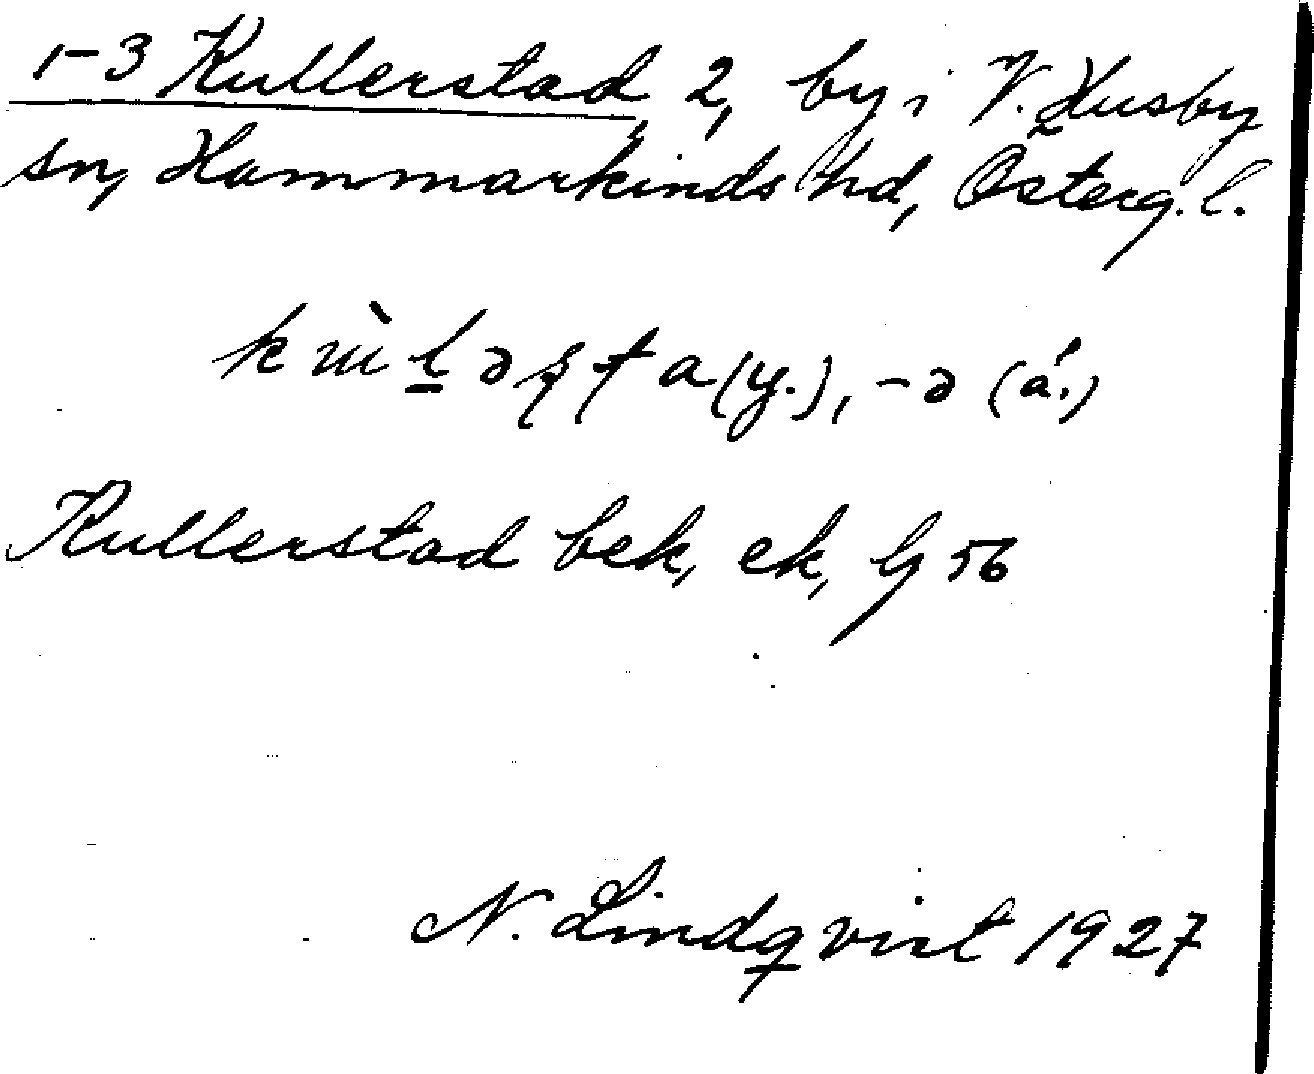 1-3 Kullerstad 2, by i V. Husby
sn, Hammarkinds hd, Österg. l.
kɯ̀l̲əʂʈa (y.), -ə (á.)
Kullerstad bek, ek, G 56
N. Lindqvist 1927